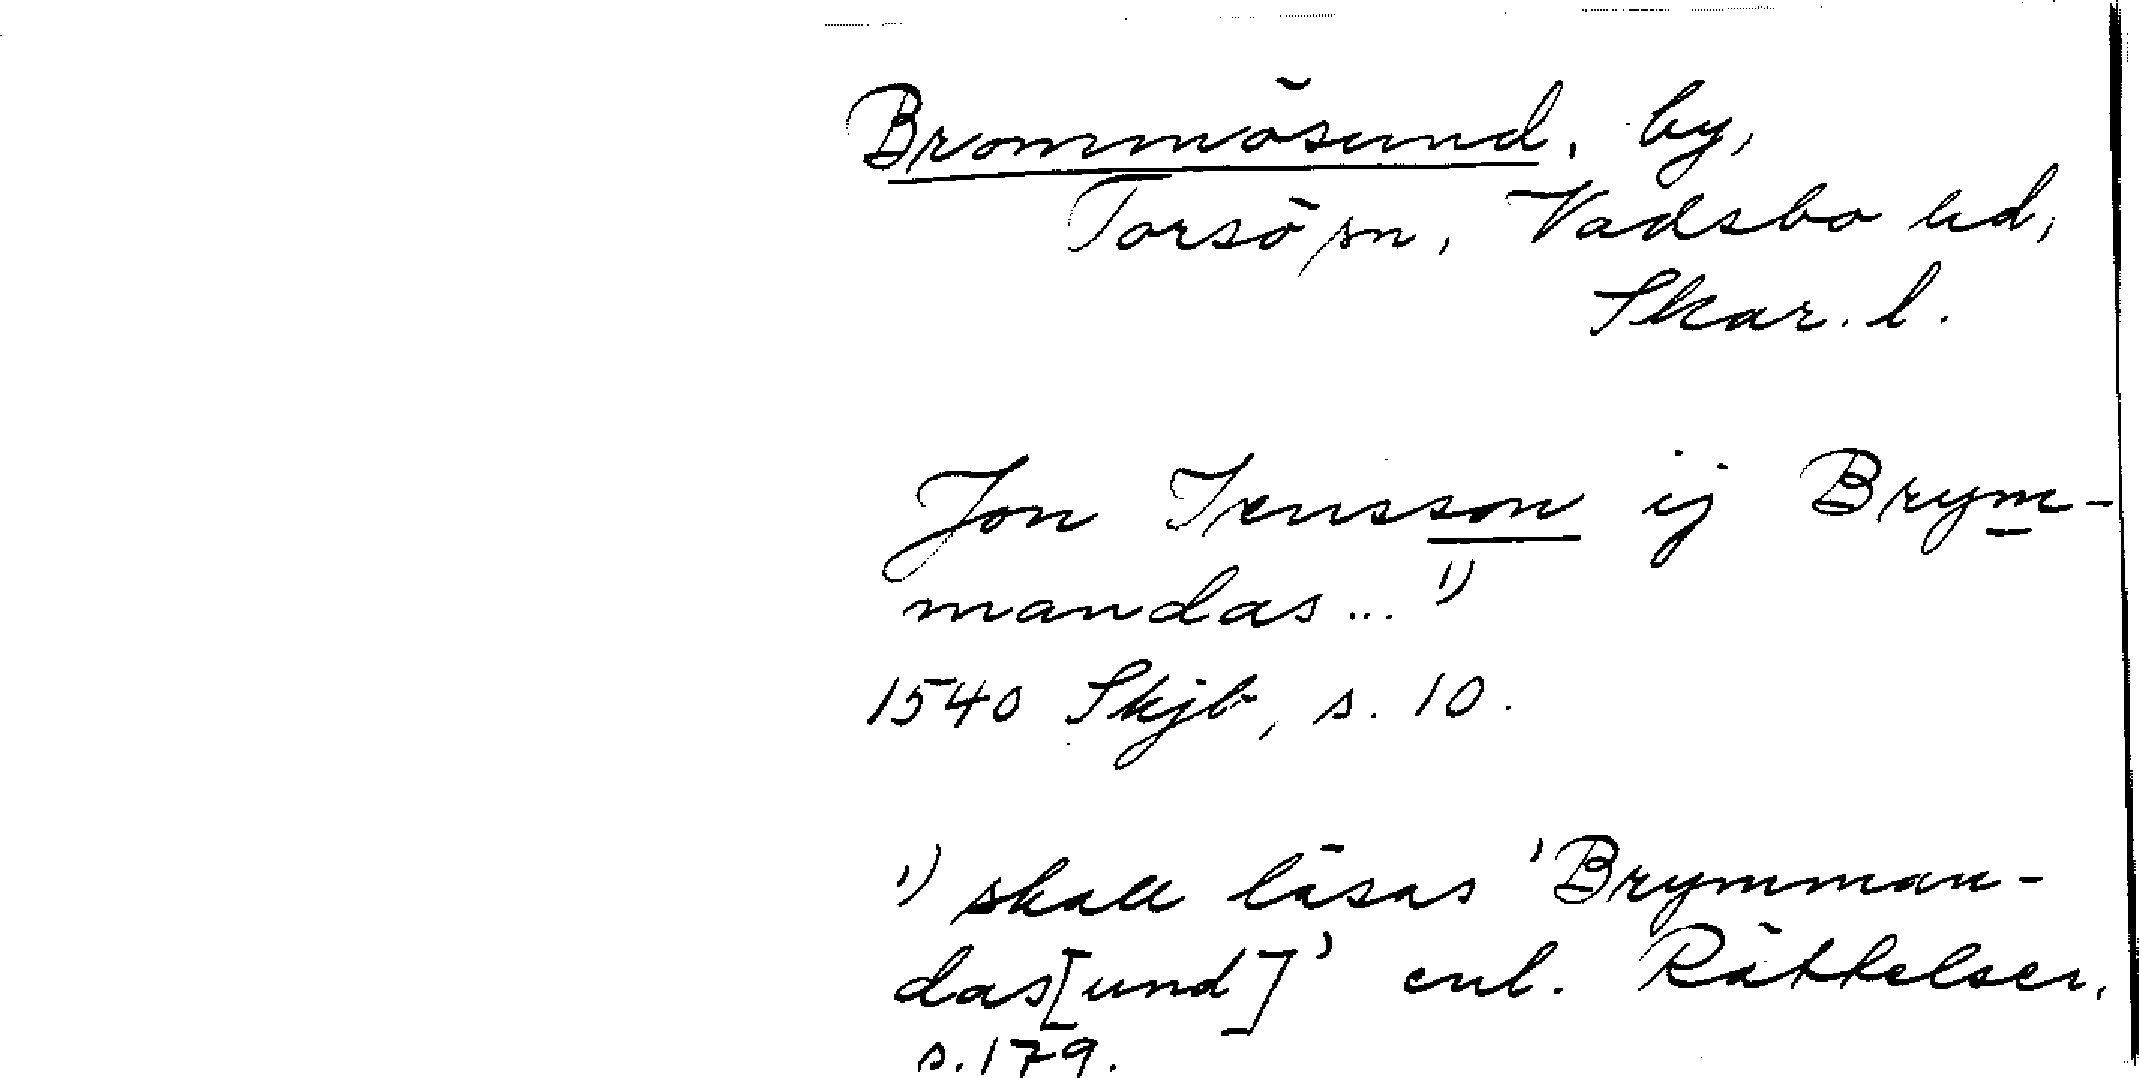 Brommösund, by,
Torsö sn, Vadsbo hd,
Skar. l.
Jon Swensson ij Brym-
mandas... 1)
1540 Skjb, s. 10.
1) skall läsas 'Brymman-
das[und]' enl. Rättelser,
s. 179.